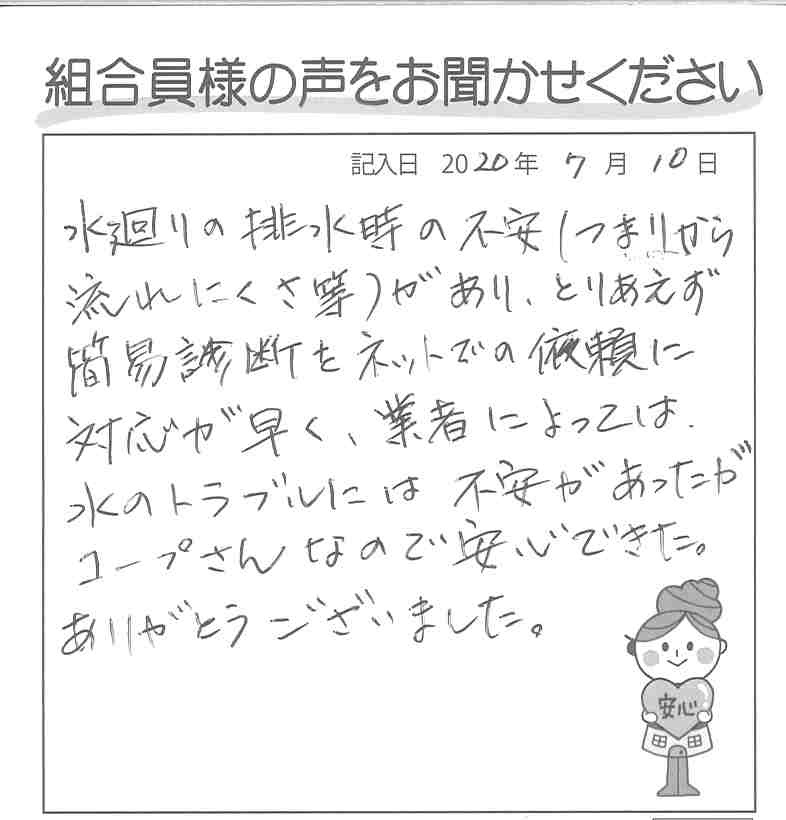 組合員様の声をお聞かせください
記入日 2020年 7月 10日
水廻りの排水時の不安(つまりから
流れにくさ等)があり、とりあえず
簡易診断をネットでの依頼に
対応が早く、業者によっては
水のトラブルには不安があったが
コープさんなので安心できた。
ありがとうございました。
安心